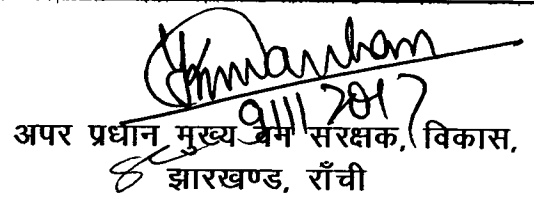 9/11/2017
अपर प्रधान मुख्य वन संरक्षक, विकास,
झारखण्ड, राँची